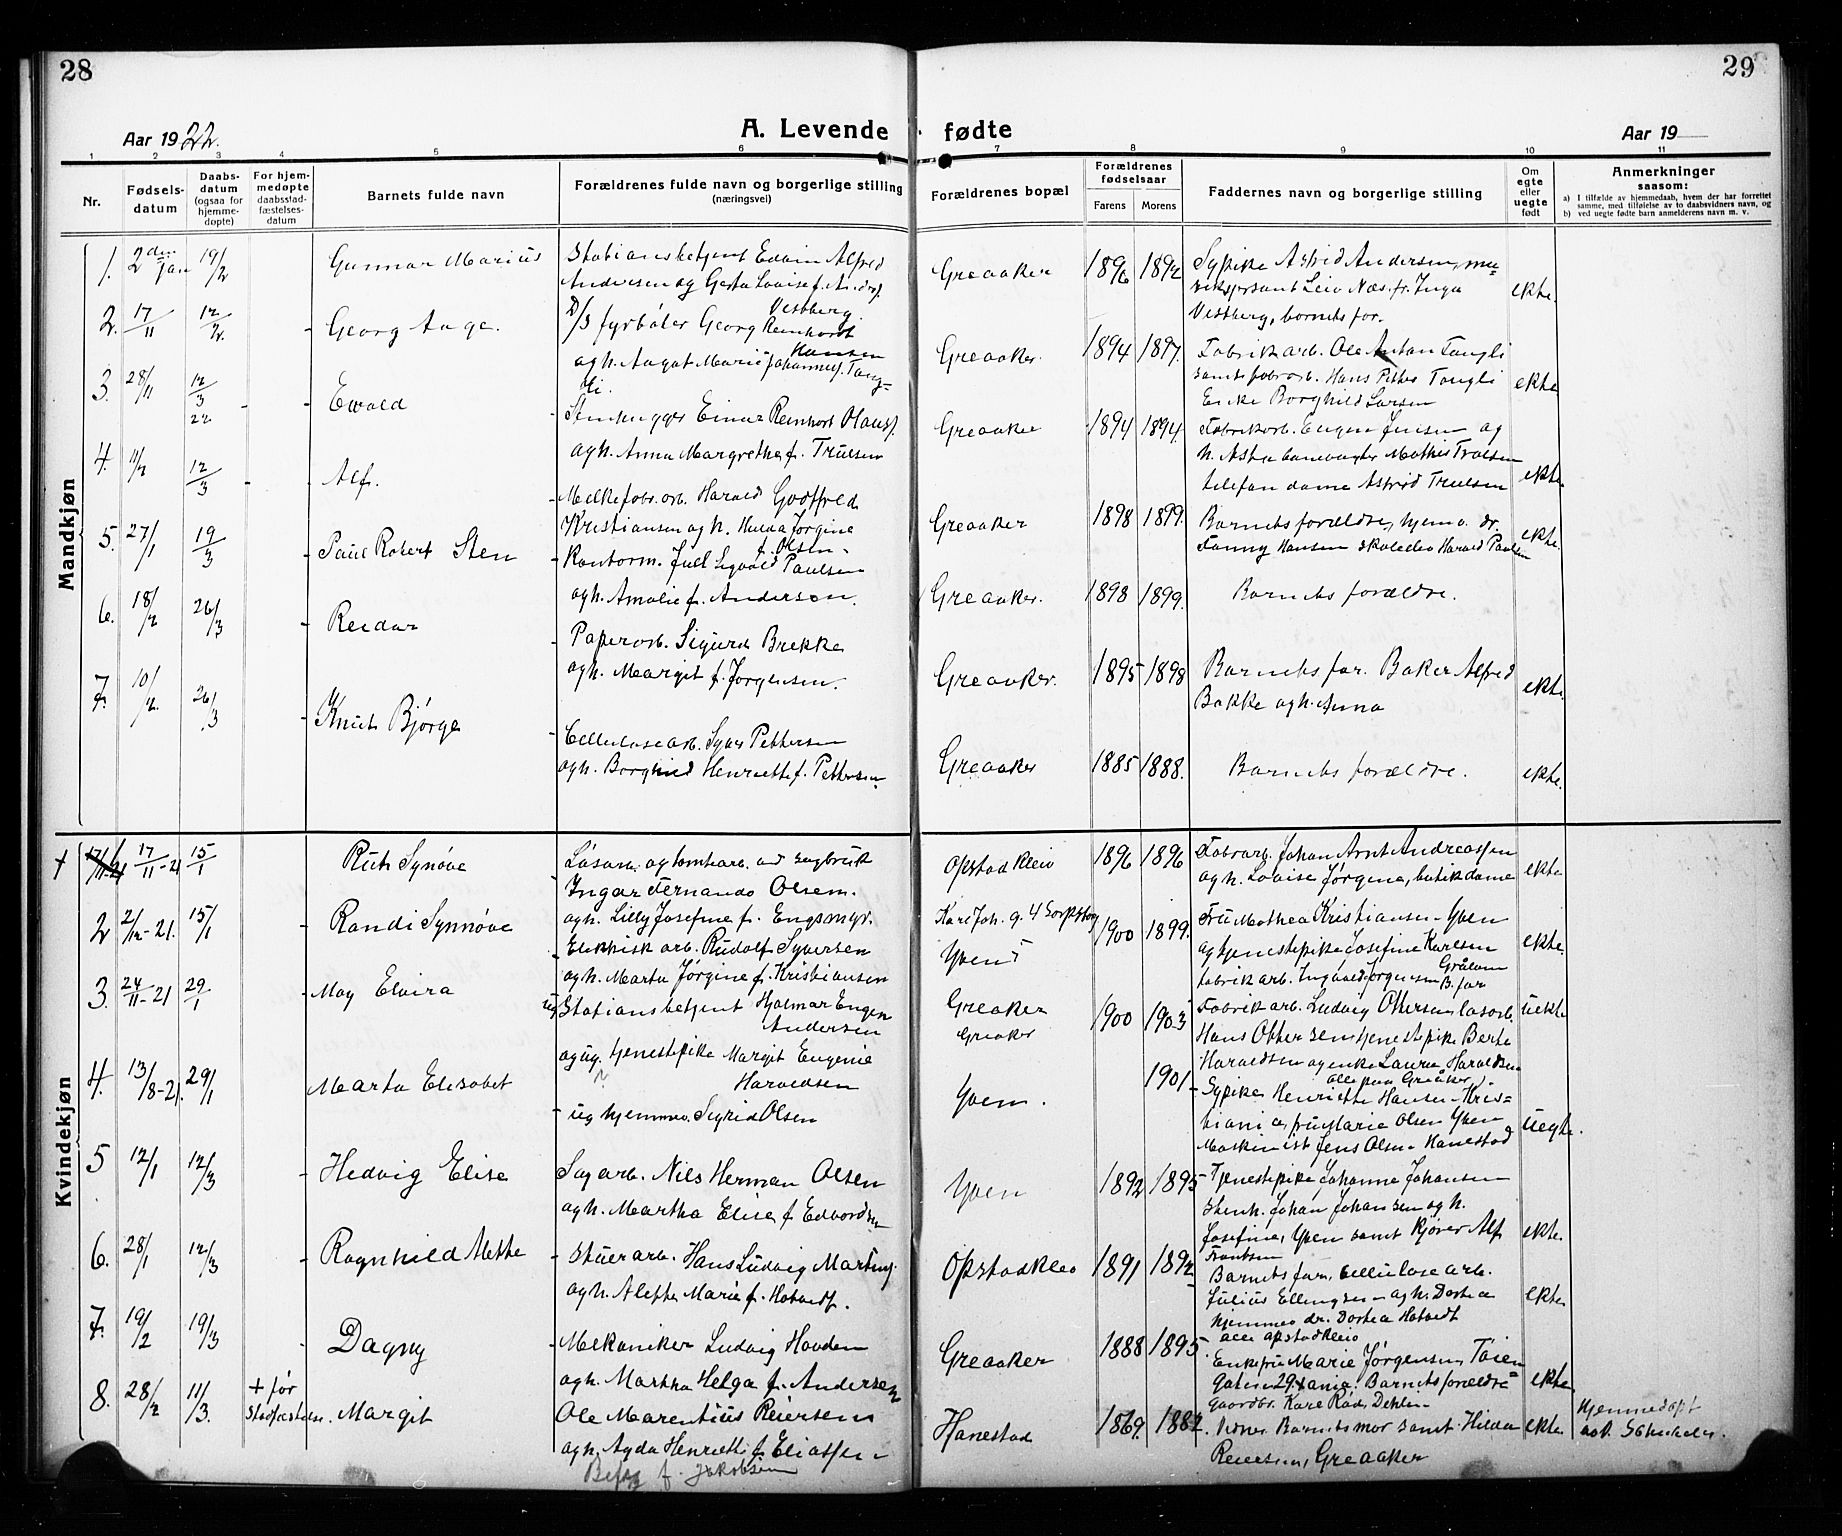 28
29
Aar 1922.
A. Levende fødte
Aar 19
1 2 3 4 5 6 7 8 9 10 11
Nr.
Fødsels-
datum
Daabs-
datum
(ogsaa for
hjemme-
døpte)
For hjem-
medøpte
daabsstad-
fæstelses-
datum
Barnets fulde navn
Forældrenes fulde navn og borgerlige stilling
(næringsvei)
Forældrenes bopæl
Forældrenes
fødselsaar
Farens
Morens
Faddernes navn og borgerlige stilling
Om
egte
eller
uegte
født
Anmerkninger
saasom:
a) I tilfælde av hjemmedaab, hvem der har forrettet
samme, med tilføielse av to daabsvidners navn, og
b) ved uegte fødte barn anmelderens navn m. v.
Mandkjøn
1. 2den Jan 19/2 Gunnar Marius
Stationsbetjent Edvin Alfred
Andersen og Gerda Lovise f.
Vestberg
Greaaker 1896 1892
Sypike Astrid Andersen, mu-
Leiv Næs. fr. Inga
Vestberg, barnets far.
ekte.
2. 17/11 12/2. - Georg Aage.
D/S fyrbøter Georg Reinhardt
Hansen
og h. Aagot Marie Johannes f. Tang-
li.
Greaaker. 1894 1897.
Fabrikarb. Ole Anton Tangli
samt fabr.arb. Hans Petter Tangli
Enke Borghild Larsen
ekte
3. 28/11 12/3 22 - - Ewald
Stenhugger Einar Reinhart Olausf.
og h. Anna Margrethe f. Truelsen
Greaaker 1894 1894.
Fabrikarb. Eugen Jensen og
h. Asta banevagter Mathis Truelsen
telefondame Astrid Truelsen
ekte.
4. 11/2 12/3 - - Alf.
- Melkefabr.arb. Harald Godtfred
Kristiansen og h. Hulda Jørgine
f. Olsen-
Greaaker 1898 1899.
Barnets forældre, hjemv. dr.
Fanny Hansen skoleelev Harald Paulsen
ekte.
5. 27/1 19/3 - Paul Robert Sten
- Kontorm. Juel Sigvald Paulsen
og h. Amalie f. Andersen.
Greaaker. 1898 1899.
Barnets forældre.
6. 18/2 26/3 - Reidar
- Papirarb. Sigurd Brekke
og h. Margit f. Jørgensen.
Greaaker. 1895 1898
Barnets far. Baker Alfred
Bakke og h. Anna
ekte.
7. 10/2. 26/3 - Knut Bjørge
Cellulosearb. Syver Pettersen
og h. Borghild Henriette f. Pettersen
Greaaker 1885 1888.
Barnets forældre.
ekte.
Kvindekjøn
+ 17/11-21 15/1 Rut Synøve
Løsarb. og tomtearb. ved sagbruk
Ingar Fernando Olsen.
og h. Lilly Josefine f. Engsmyr.
Opstadkleiv 1896 1896
Fabrarb. Johan Arnt Andreassen
og h. Lovise Jørgine, butikdame
ekte
2 2/12-21. 15/1 - Randi Synnøve
- Elektrisk arb. Rudolf Syversen
og h. Marta Jørgine f. Kristiansen
Karl Joh. g. 4 Sarpsborg
Yven
1900 1899.
Fru Mathea Kristiansen - Yven
og tjenestepike Josefine Karlsen
Grålum
fabrikarb. Ingvald Jørgensen B. far
ekte.
3. 24/11-21 29/1 - May Elvira
ug Stationsbetjent Hjalmar Eugen
Andersen
og ug. tjenestepike Margit Eugenie
Haraldsen
Greaker
Greaker
1900 1903
Fabrikarb. Ludvig Ottersen løsarb.
Hans Ottersen tjenestepike Berte
Haraldsen og enke Laura Haraldsen
alle paa Greåker
uekte
4. 13/8-21. 29/1 Marta Elisabet
- ug hjemmev. Sigrid Olsen
Yven. 1901
- Sypike Henriette Hansen - Kris-
tiania, fru Marie Olsen Yven
Maskinist Jens Olsen Hanestad
uegte.
5 12/1 12/3 - Hedvig Elise
Sagarb. Nils Herman Olsen
og h. Martha Elise f. Edvardsen
Yven 1892 1895
- Tjenestepike Johanne Johansen
Stenh. Johan Johansen og h.
Josefine, Yven samt kjører Alf
Frantsen
ekte.
6. 28/1 12/3 - Ragnhild Alette
- Stuerarb. Hans Ludvig Martins.
og h. Alette Marie f. Hatvedt.
Opstadkleiv 1891 1892
Barnets far, cellulosearb.
Julius Ellingsen og h. Dortea
hjemmev. dr. Dortea Hatvedt
alle Opstadkleiv
ekte.
7. 19/2 19/3 - Dagny
- Mekaniker Ludvig Hovden
og h. Martha Helga f. Andersen
Greaaker 1888 1895.
Enkefru Marie Jørgensen, Tøien-
gaten 29 Xania. Barnets forældre
gaardbr. Kare Rød, Dehlin
ekte.
8. 28/2 11/3. + før Stadfæstelse. Margit
Ole Marentius Reiersen
og h. Agda Henriette f. Eliassen
f. Jakobsen
Hanestad 1869. 1882.
Vidner Barnets mor samt Hilda
Reiersen, Greaaker
ekte.
Hjemmedøpt
av